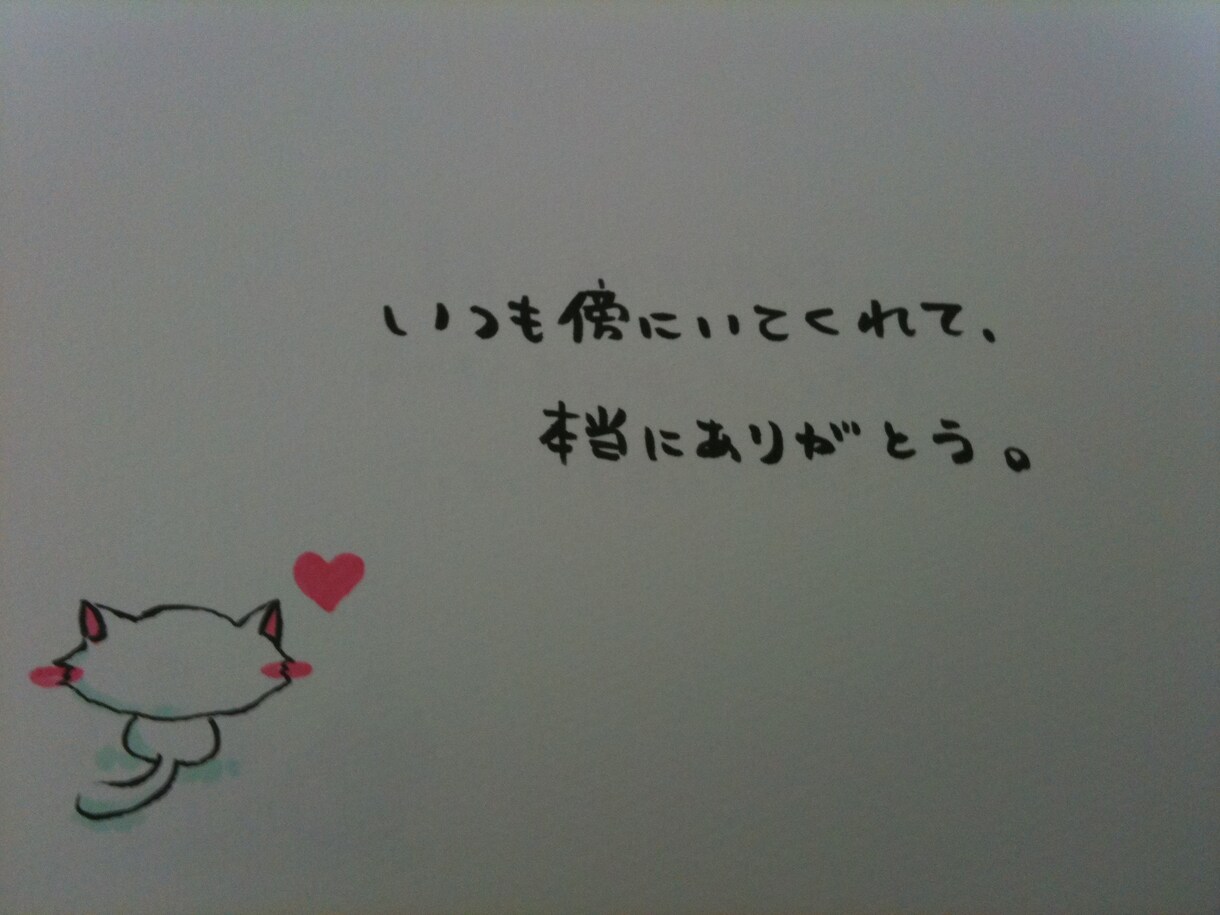 いつも傍にいてくれて、
本当にありがとう。